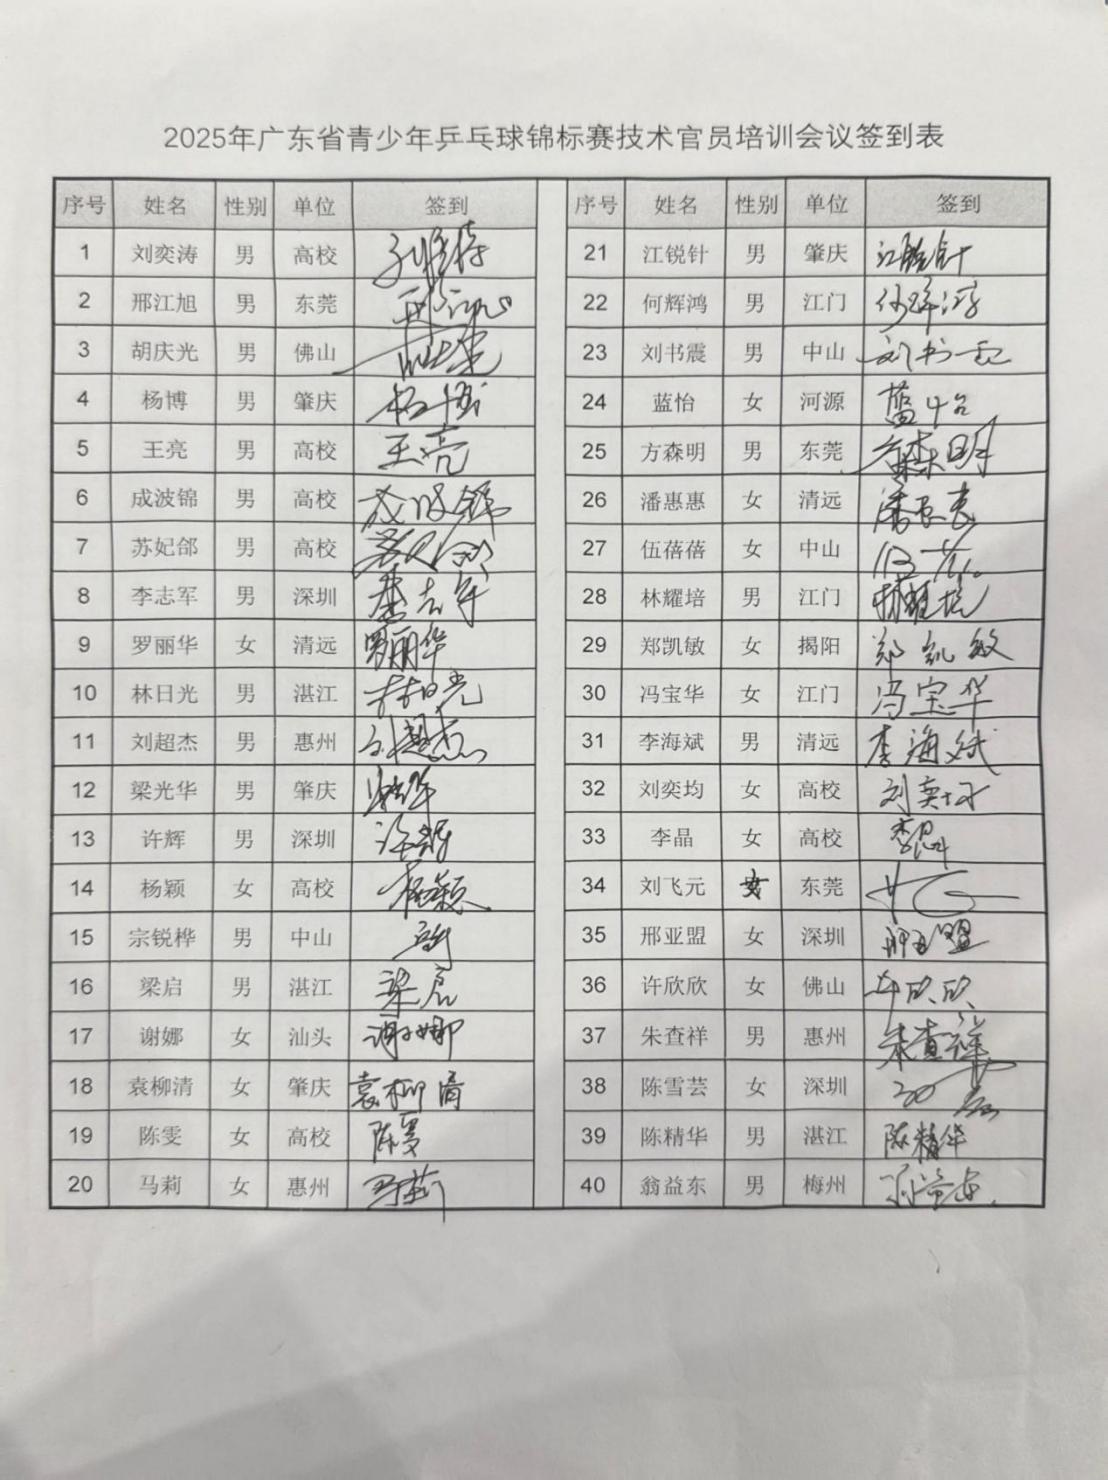 2025年广东省青少年乒乓球锦标赛技术官员培训会议签到表
序号 姓名 性别 单位 签到 序号 姓名 性别 单位 签到
1 刘奕涛 男 高校 21 江锐针 男 肇庆 江锐针
2 邢江旭 男 东莞 22 何辉鸿 男 江门 何辉鸿
3 胡庆光 男 佛山 23 刘书震 男 中山 刘书震
4 杨博 男 肇庆 杨博 24 蓝怡 女 河源 蓝怡
5 王亮 男 高校 王亮 25 方森明 男 东莞 方森明
6 成波锦 男 高校 成波锦 26 潘惠惠 女 清远 潘惠惠
7 苏妃郃 男 高校 27 伍蓓蓓 女 中山
8 李志军 男 深圳 李志军 28 林耀培 男 江门 林耀培
9 罗丽华 女 清远 罗丽华 29 郑凯敏 女 揭阳 郑凯敏
10 林日光 男 湛江 林日光 30 冯宝华 女 江门 冯宝华
11 刘超杰 男 惠州 刘超杰 31 李海斌 男 清远 李海斌
12 梁光华 男 肇庆 32 刘奕均 女 高校 刘奕均
13 许辉 男 深圳 许辉 33 李晶 女 高校 李晶
14 杨颖 女 高校 杨颖 34 刘飞元 女 东莞
15 宗锐桦 男 中山 35 邢亚盟 女 深圳 邢亚盟
16 梁启 男 湛江 梁启 36 许欣欣 女 佛山 许欣欣
17 谢娜 女 汕头 谢娜 37 朱查祥 男 惠州 朱查祥
18 袁柳清 女 肇庆 袁柳清 38 陈雪芸 女 深圳
19 陈雯 女 高校 陈雯 39 陈精华 男 湛江 陈精华
20 马莉 女 惠州 马莉 40 翁益东 男 梅州 翁益东